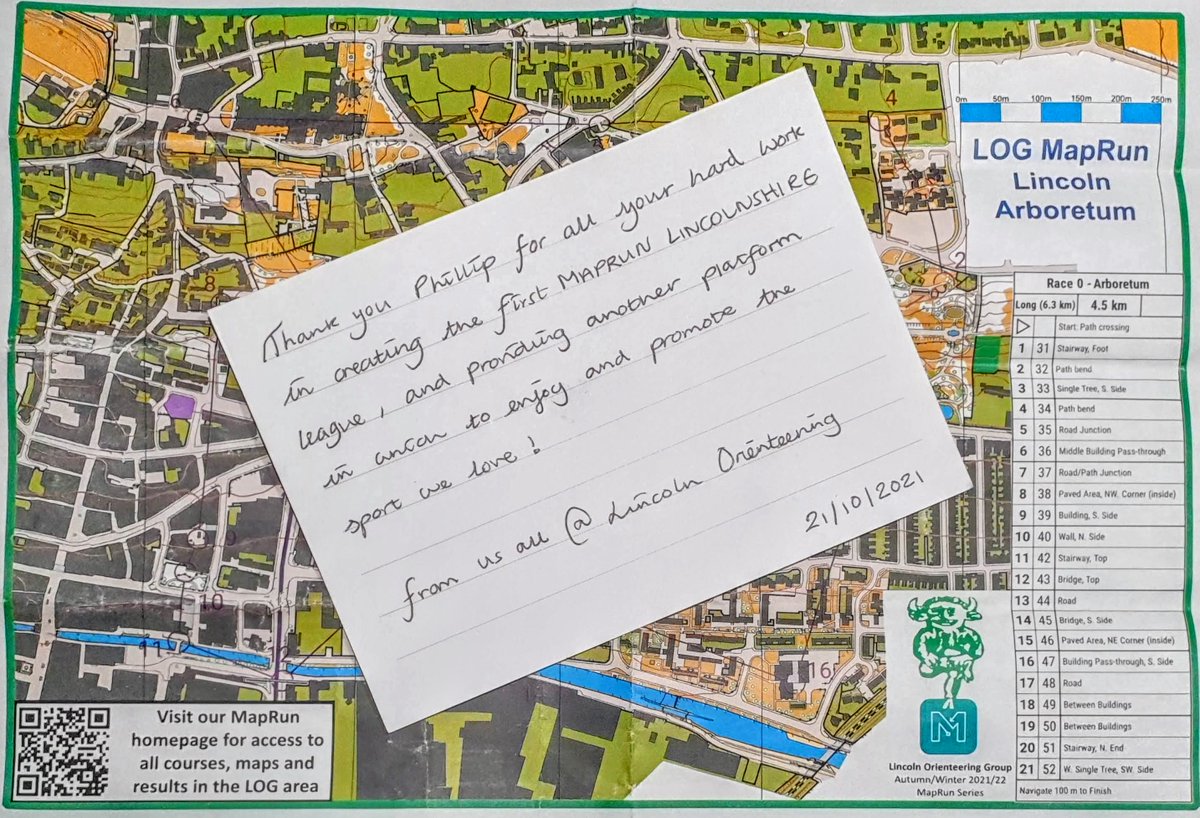 Thank you Phillip for all your hard work
in creating the first MAPRUN LINCOLNSHIRE
league, and providing another platform
in which to enjoy and promote the
sport we love!
from us all @ Lincoln Orienteering
21/10/2021
0m 50m 100m 150m 200m 250m
LOG MapRun
Lincoln
Arboretum
4
2
8
9
10
16
Race 0 - Arboretum
Long (6.3 km) 4.5 km
Start: Path crossing
1 31 Stairway, Foot
2 32 Path bend
3 33 Single Tree, S. Side
4 34 Path bend
5 35 Road Junction
6 36 Middle Building Pass-through
7 37 Road/Path Junction
8 38 Paved Area, NW. Corner (inside)
9 39 Building, S. Side
10 40 Wall, N. Side
11 42 Stairway, Top
12 43 Bridge, Top
13 44 Road
14 45 Bridge, S. Side
15 46 Paved Area, NE Corner (inside)
16 47 Building Pass-through, S. Side
17 48 Road
18 49 Between Buildings
19 50 Between Buildings
20 51 Stairway, N. End
21 52 W. Single Tree, SW. Side
Navigate 100 m to Finish
M
Lincoln Orienteering Group
Autumn/Winter 2021/22
MapRun Series
Visit our MapRun
homepage for access to
all courses, maps and
results in the LOG area